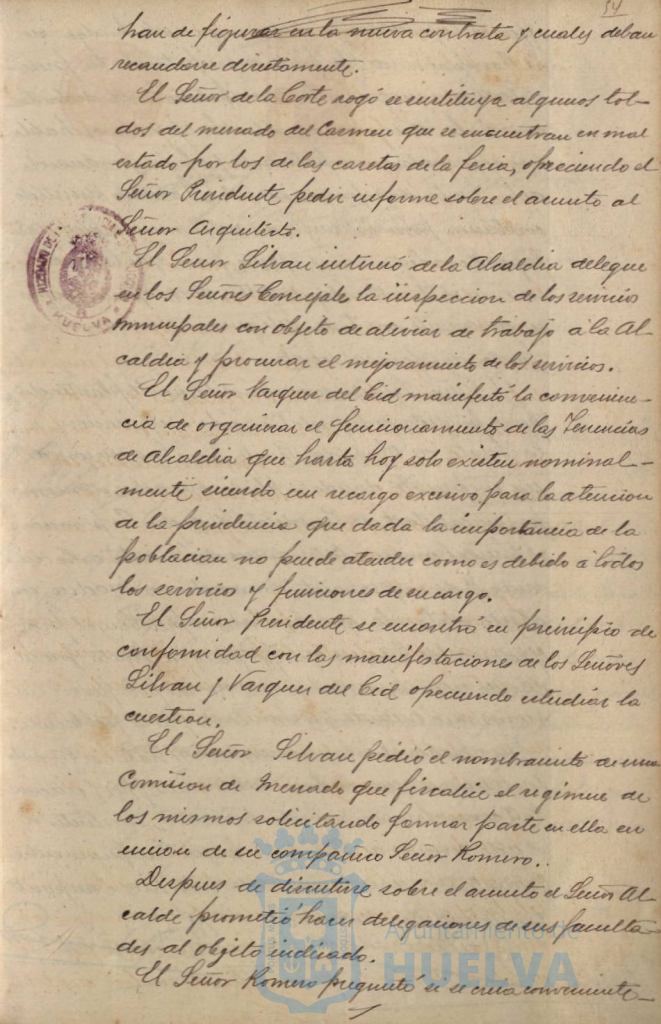 54
han de figurar en la nueva contrata y cuales deban
recaudarse directamente.
El Señor de la Corte rogó se sustituya algunos tol-
dos del mercado del Carmen que se encuentran en mal
estado por los de las casetas de la feria, ofreciendo el
Señor Presidente pedir informe sobre el asunto al
Señor Arquitecto.
El Señor Silvan interesó de la Alcaldia delegue
en los Señores Concejales la inspeccion de los servicios
municipales con objeto de aliviar de trabajo á la Al-
caldia y procurar el mejoramiento de los servicios.
El Señor Vazquez del Cid manifestó la convenien-
cia de organizar el funcionamiento de las Tenencias
de Alcaldia que hasta hoy solo existen nominal-
mente siendo un recargo excesivo para la atencion
de la presidencia que dada la importancia de la
poblacion no puede atender como es debido á todos
los servicios y funciones de su cargo.
El Señor Presidente se encontró en principio de
conformidad con las manifestaciones de los Señores
Silvan y Vazquez del Cid ofreciendo estudiar la
cuestion.
El Señor Silvan pidió el nombramiento de una
Comision de Mercado que fiscalice el regimen de
los mismos solicitando formar parte en ella en
union de su compañero Señor Romero.
Despues de discutirse sobre el asunto el Señor Al-
calde prometió hacer delegaciones de sus faculta-
des al objeto indicado.
El Señor Romero preguntó si se creia conveniente
HUELVA
Ayuntamiento de
HUELVA